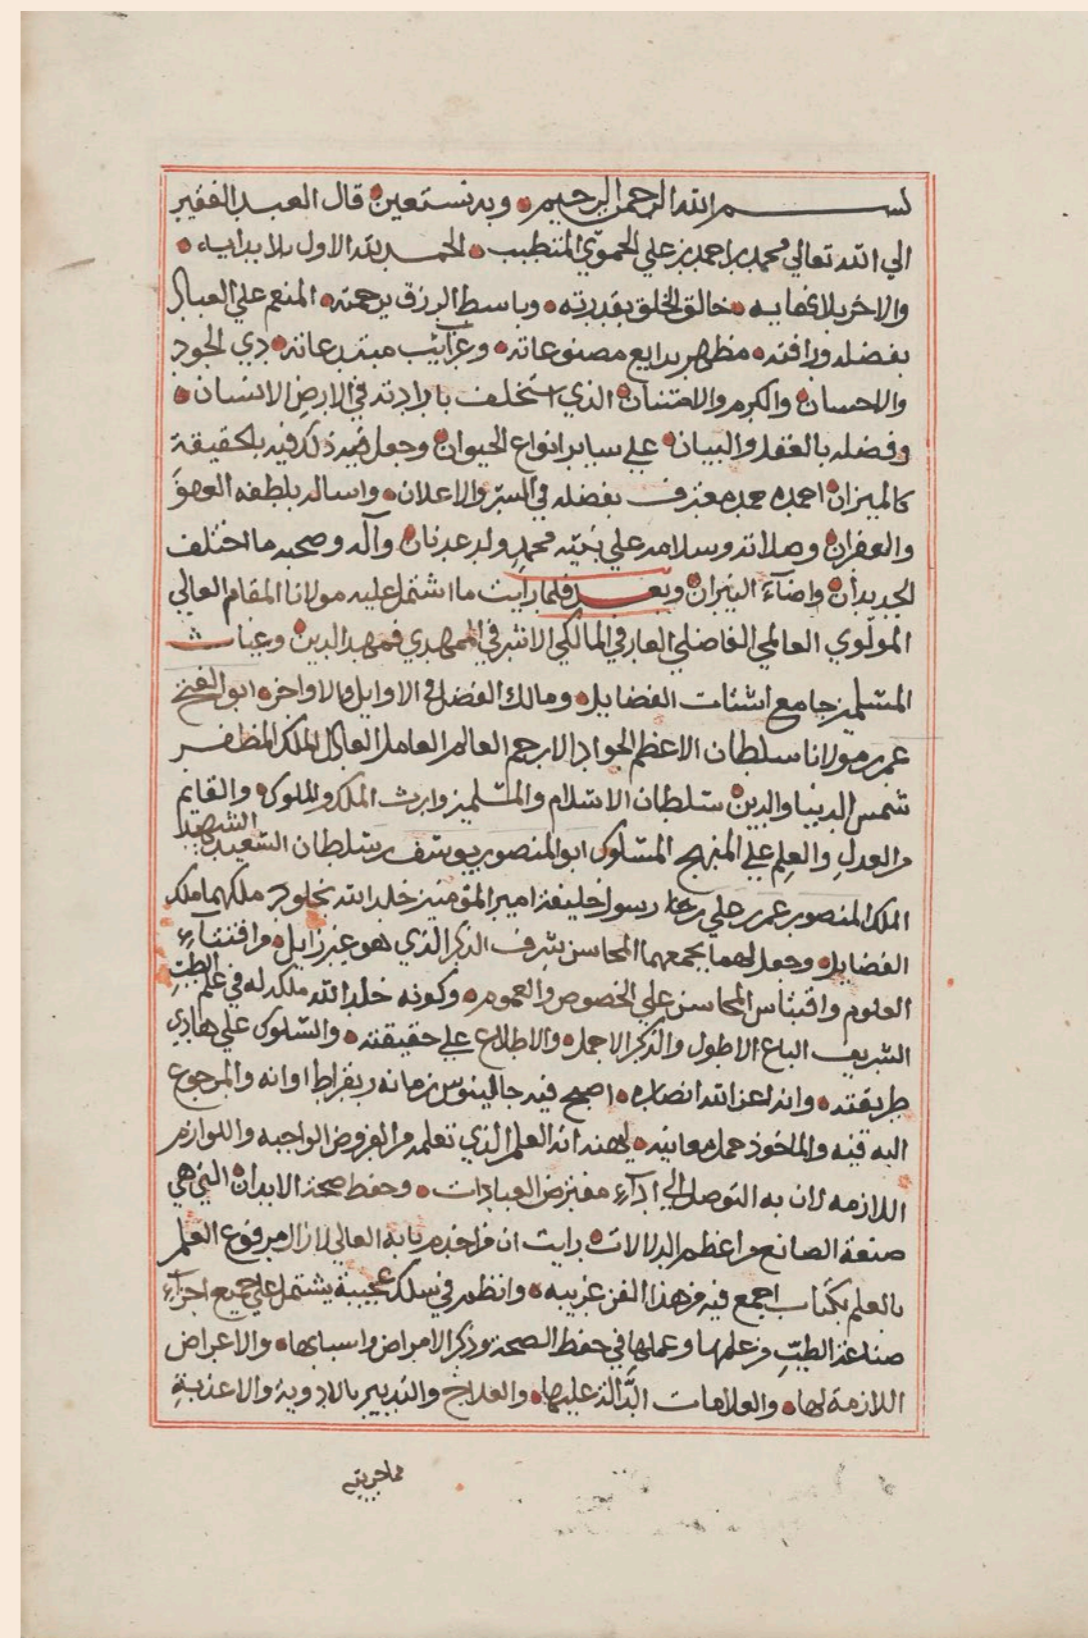 بســـــم الله الرحمن الرحيم وبه نستعين قال العبد الفقير
الي الله تعالي محمد بن احمد بن علي الحموي المتطبب الحمد لله الاول بلا بدايه
والاخر بلا نهايه خالق الخلق بقدرته وباسط الرزق برحمته المنعم علي العباد
بفضله ورافته مظهر بدايع مصنوعاته وغرايب مبتدعاته دي الجود
والاحسان والكرم والامتنان الذي استخلف بارادته في الارض الانسان
وفضله بالعقل والبيان علي ساير انواع الحيوان وجعل فيه ذلك فيه بالحقيقة
كالميزان احمده حمد معترف بفضله في السر والاعلان واساله بلطفه العفو
والغفران وصلاته وسلامه علي نبيه محمد ولد عدنان وآله وصحبه ما اختلف
الجديدان واضآء النيران وبعـــد فلما رايت ما اشتمل عليه مولانا المقام العالي
المولوي العالمي الفاضلي العارفي المالكي الاشرفي الممهدي فمهد الدين وغياث
المسلمين جامع اشتات الفضايل ومالك الفضل في الاوايل والاواخر ابو الفتح
عمر بن مولانا سلطان الاعظم الجواد الارحم العالم العامل العادل الملك المظفر
شمس الدنيا والدين سلطان الاسلام والمسلمين وارث الملك والملوك والقايم
من العدل والعلم علي المنهج المسلوك ابو المنصور يوسف بن سلطان السعيد الشهيد
الملك المنصور عمر بن علي بن رسول خليفة امير المؤمنين خلد الله بخلود ملكهما ملك
الفضايل وجعل لهما بجمعهما المحاسن شرف الذكر الذي هو غير زايل من اقتنآء
العلوم واقتباس المحاسن علي الخصوص والعموم وكونه خلد الله ملكه له في علم الطب
الشريف الباع الاطول والذكر الاجمل والاطلاع علي حقيقته والسلوك علي هادي
طريقته وانه اعز الله انصاره اصبح فيه جالينوس زمانه وبقراط اوانه والمرجوع
اليه فيه والماخوذ حمل معانيه ليهنه انه العلم الذي تعلمه من الفروض الواجبه واللوازم
اللازمه لان به التوصل الي ادآء مفترض العبادات وحفظ صحة الابدان التي هي
صنعة الصانع من اعظم الدلالات رايت ان اخدم بابه العالي لازال مرفوع العلم
بالعلم بكتاب اجمع فيه من هذا الفن غريبه وانظم في سلك عجيبة يشتمل علي جميع اجزآء
صناعة الطب من علمها وعملها في حفظ الصحة وذكر الامراض واسبابها والاعراض
اللازمة لها والعلامات الدالة عليها والعلاج والتدبير بالادوية والاغذية
مما جربته